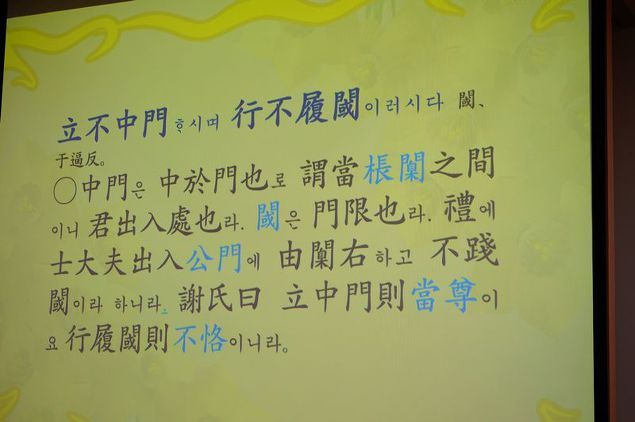 立不中門ᄒᆞ시며 行不履閾이러시다 閾、
于逼反。
○中門은 中於門也로 謂當棖闑之間
이니 君出入處也라. 閾은 門限也라. 禮에
士大夫出入公門에 由闑右하고 不踐
閾이라 하니라. 謝氏曰 立中門則當尊이
요 行履閾則不恪이니라。